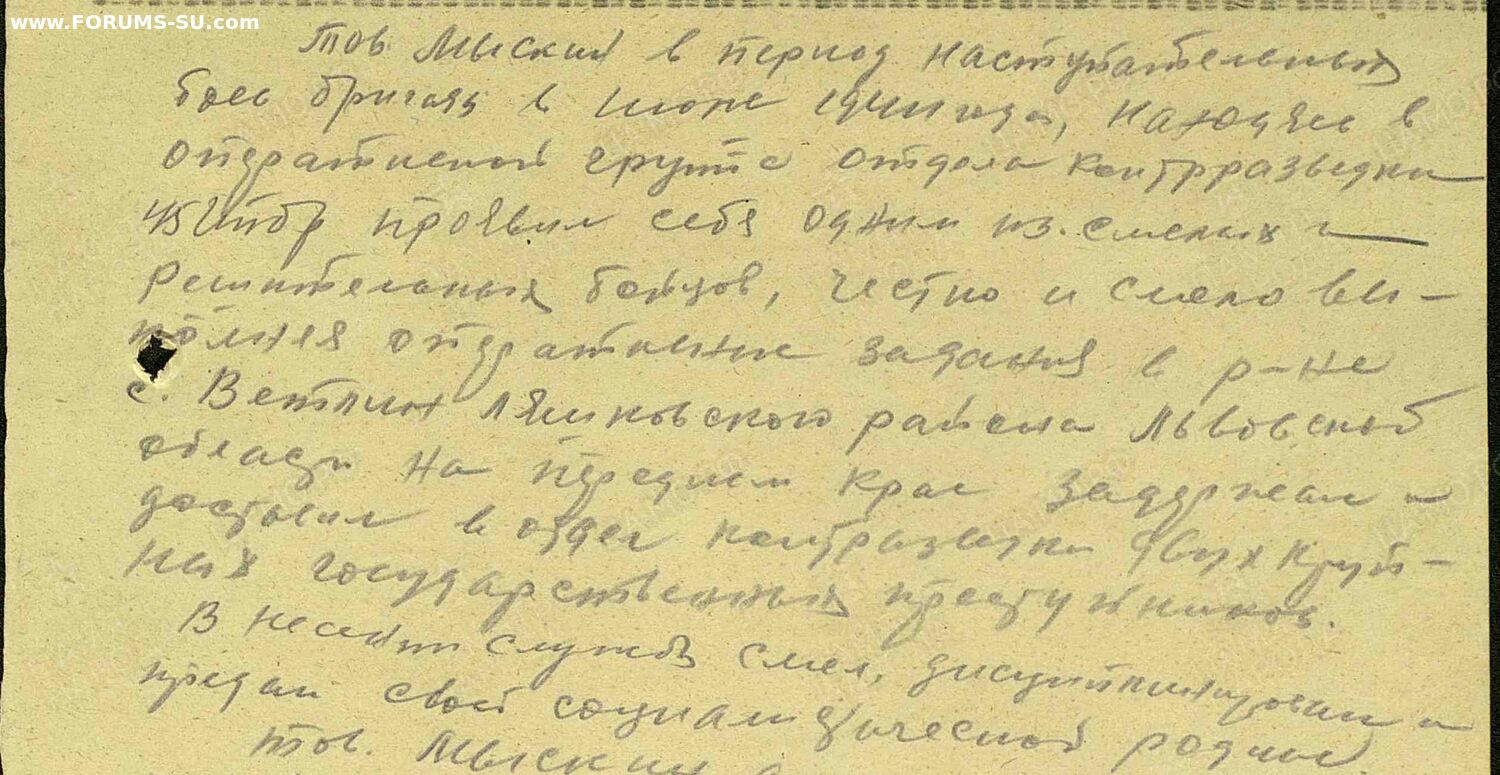 www.FORUMS-SU.com
тов. Мыский в период наступательных
боев бригады в июле 1944 года, находясь в
оперативной группе отдела контрразведки
проявил себя одним из смелых и
решительных бойцов, честно и смело вы-
полняя оперативные задания в р-не
с. Ветлин Ляшковского района Львовской
области на переднем крае задержал и
доставил в отдел контразведки двух круп-
ных государственных преступников.
В несении службы смел, дисциплинирован и
предан своей социалистической родине
тов. Мыский